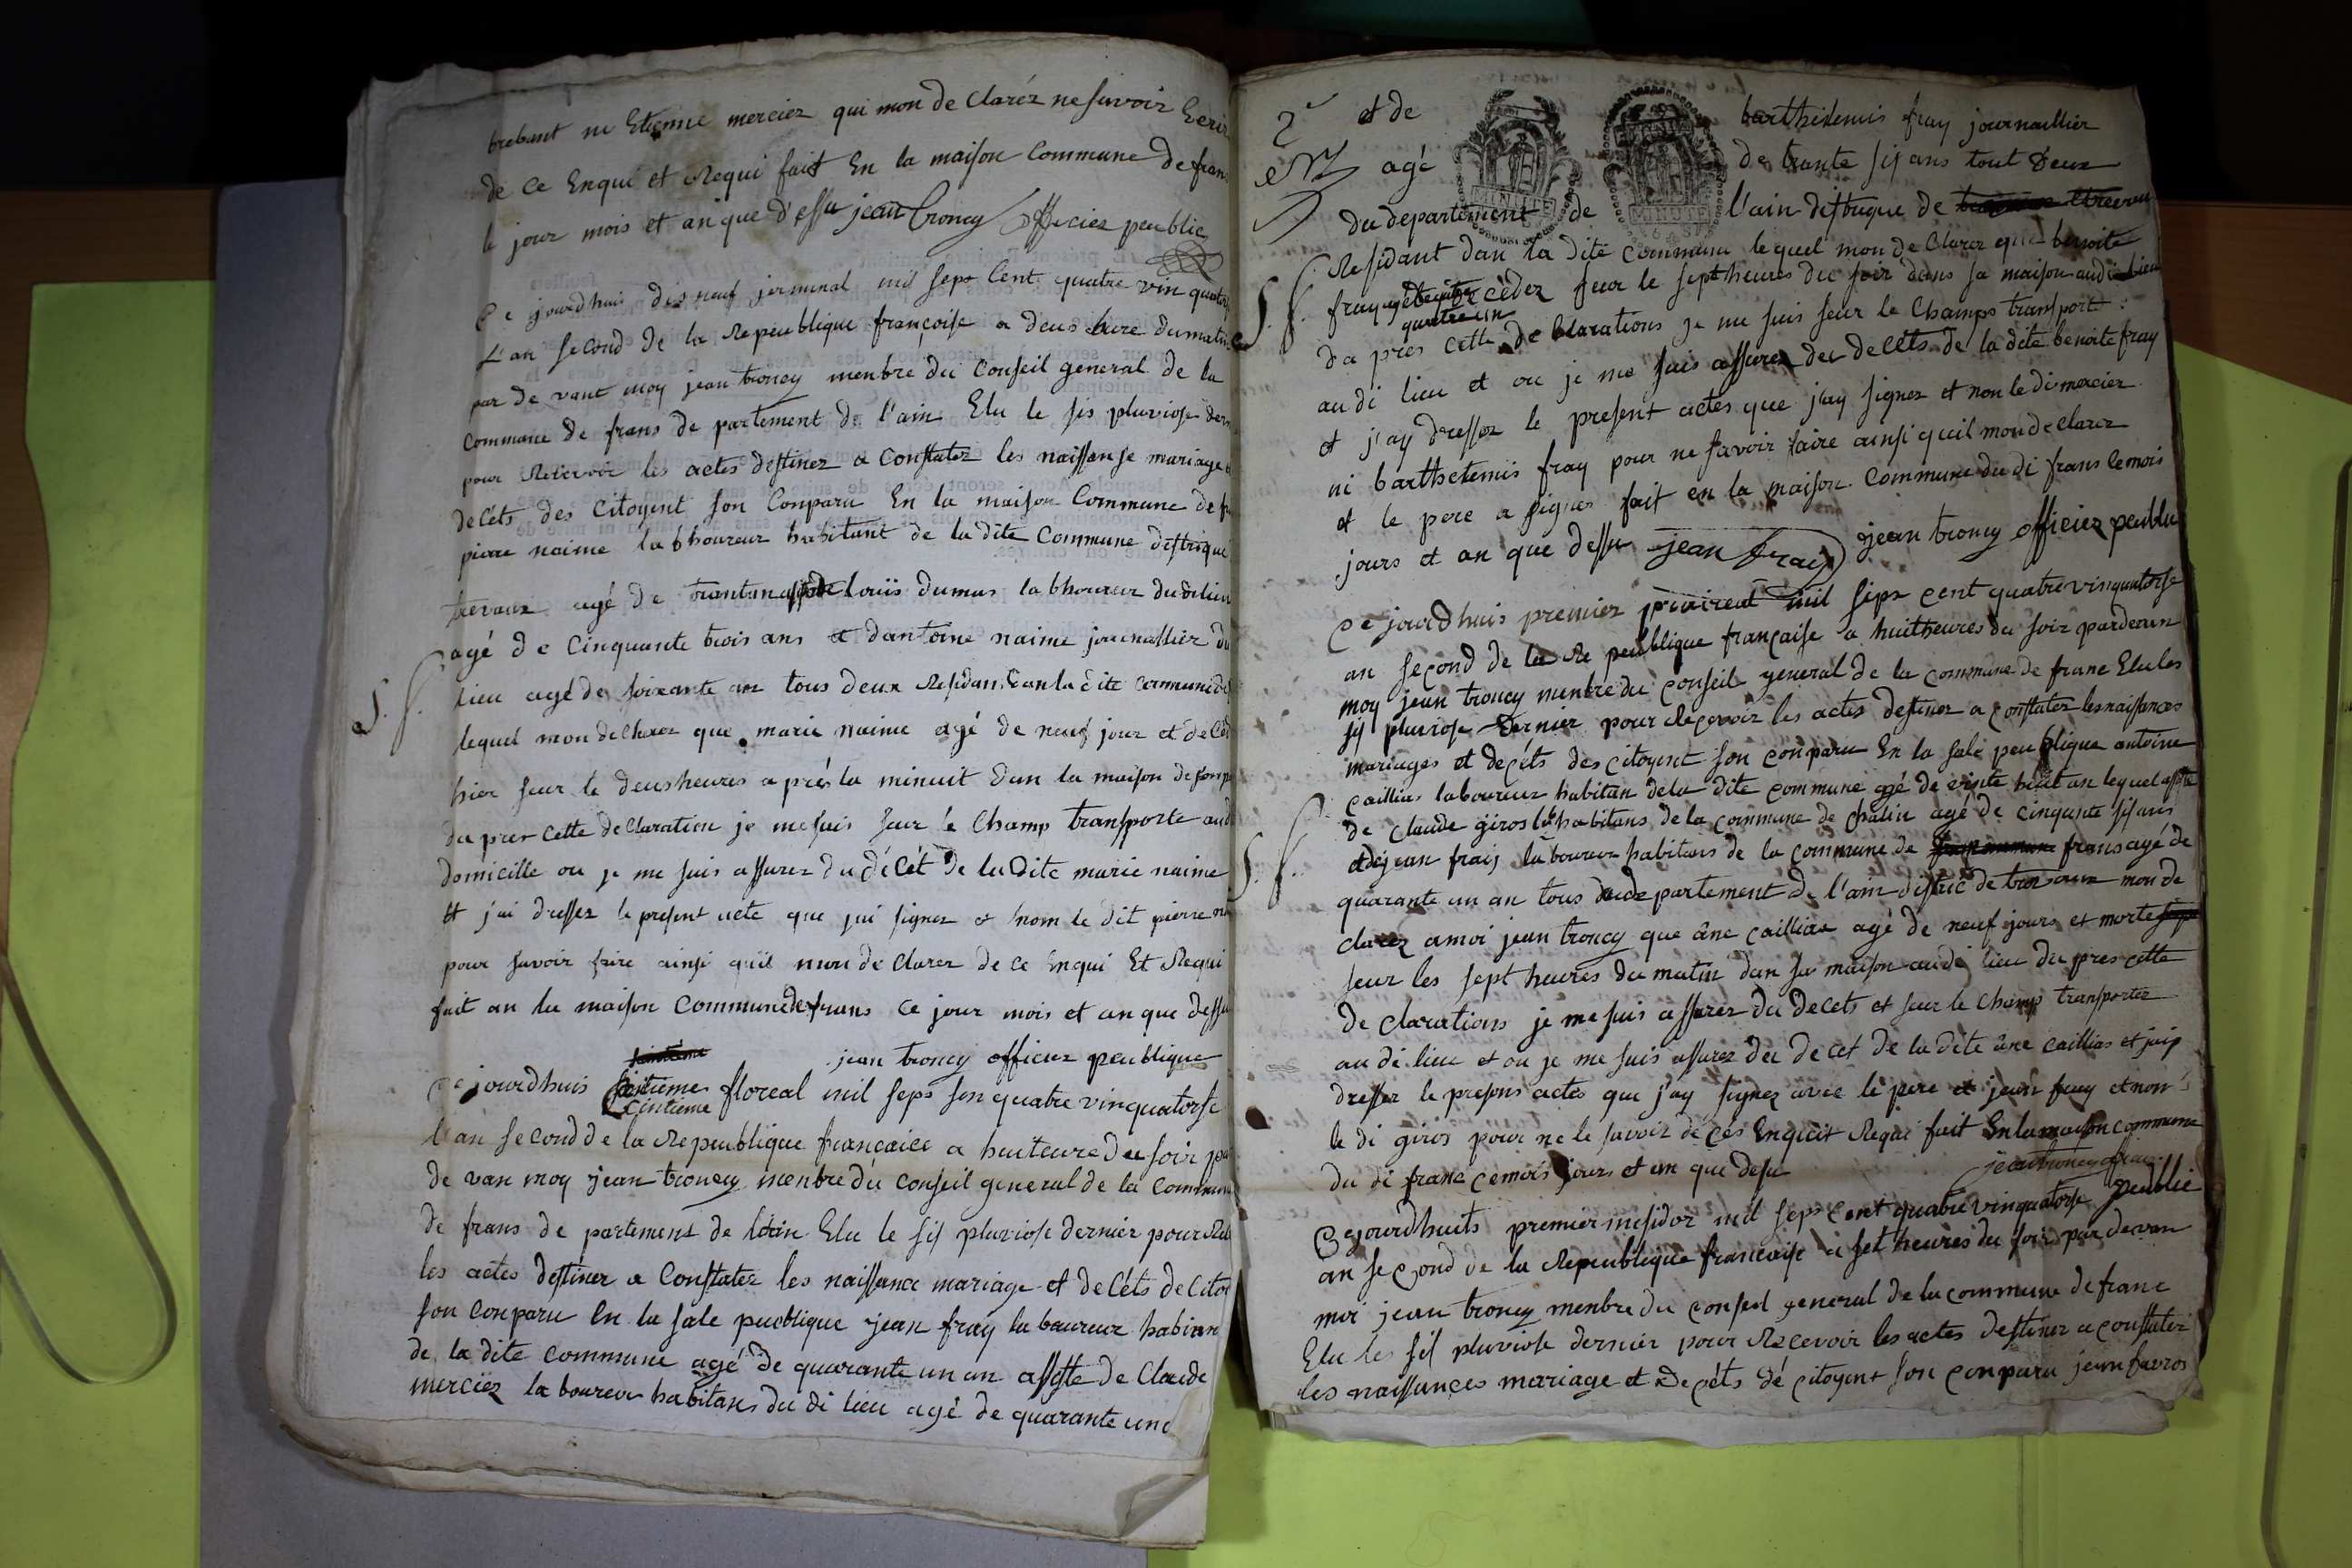 brebant ni Etienne mercier qui mon de Claréz ne savoir Ecrir
de Ce Enqui et Requi fait En la maison Commune de fran
le jour mois et an que d'essu jean troncy officier peublic
Ce jourdhuis dis neuf jerminal mil sept Cent quatre vin quator
L'an second de la Republique françoise a deus hure du matin
par de vant moy jean troncy menbre du Conseil general de la
Commune de frans de partement de l'ain Elu le sis pluviose der
pour Recevoir les actes destinez a Constatez les naissanse mariage
decéts des Citoyent son Conparu En la maison Commune de fr
pierre naime labhoureur habitant de la dite Commune distrique
trevaux agé de louïs dumas labhoureur dudi lieu
agé de Cinquante trois ans et dantoine naime journallier du
S. f. lieu agé de soixante an tous deux Residans dan la dite commune
lequel mon de Clarez que marie naime agé de neuf jour et de Céd
hier seur le deus heures aprés la minuit dan la maison de son p
da pres cette declaration je me suis seur le Champ transporte aud
domicille ou je me suis assurez du décét de la dite marie naime
Et j'ai dressez le present acte que jai signez et nom le dit pierre na
pour savoir faire ainsi quil mon de Clarez de Ce Enqui Et Requi
fait an la maison Commune de frans Ce jour mois et an que dessu
jean troncy officier peublique
Ce jourdhuis Cintieme floreal mil seps sen quatre vinquatorse
l'an second de la Repeublique francaice a huiteure du soir par
de van moy jean troncy menbre du Conseil general de la Commune
de frans de partement de l'ain Elu le sis pluviose dernier pour Rece
les actes destinez a Constatez les naissance mariage et decéts de Citoy
son Conparu En la sale peublique jean fray laboureur habitan
de la dite Commune agé de quarante un an assiste de Claude
merciez laboureur habitans du di lieu agé de quarante une
2e et de barthelemis fray journaillier
agé de trante sis ans tout deux
du departement de l'ain distrique de
MINUTE
MINUTE
Residant dan la dite Commune lequel mon de Clarez que benoite
S. f. fray decédez seur le sept heures du soir dans sa maison audi lieu
da pres cette de Clarations je me suis seur le Champs transporte
au di lieu et ou je me suis assurez du decéts de la dite benoite fray
et j'ay dressez le present actes que j'ay signez et non le di mercier
ni barthelemis fray pour ne savoir faire ainsi quil mon de clarez
et le pere a signes fait en la maison Commune du di frans ce mois
jours et an que dessu jean fray jean troncy officiez peublic
Ce jourdhuis premier prairial mil seps cent quatre vinquatorse
an second de la Re peublique française a huit heures du soir pardevan
moy jean troncy menbre du conseil general de la commune de franc Elu les
sis pluviose dernier pour Recevoir les actes destinez a constatez les naissances
mariages et decéts des citoyent son conparu En la sale peublique antoine
caillias laboureur habitan de la dite commune agé de vinte huit an lequel assisté
de Claude giros habitans de la commune de chalin agé de cinquante sis ans
S. f. et de jean frais laboureur habitans de la commune de frans agé de
quarante un an tous du departement de l'ain distric de mon de
clarez a moi jean troncy que âne caillias agé de neuf jours et morte
seur les sept heures du matin dan sa maison au di lieu da pres cette
de clarations je me suis assurez du decets et seur le champ transportez
au di lieu et ou je me suis assurez du decet de la dite âne caillias et jais
dressez le presens actes que j'ay signez avec le pere et jean fray et non
le di giros pour ne le savoir de ces Enquit Requi fait En la maison commune
du di franc ce mois jours et an que desu jean troncy officier
peublic
Ce jourdhuits premier mesidor mil seps cent quatre vinquatorse
an second de la Repeublique francaise a set heures du soir par devan
moi jean troncy menbre du conseil general de la commune de franc
Elu les sis pluviose dernier pour Recevoir les actes destinez a constatez
les naissances mariage et decéts dé citoyent son conparu jean favros